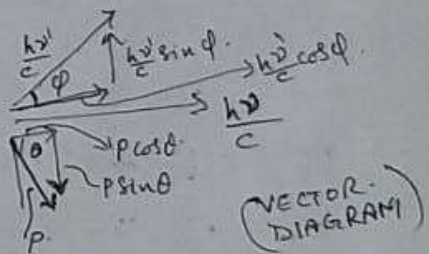 hν'/c
φ
hν'/c sin φ.
hν'/c cos φ.
hν/c
θ
p cos θ.
p sin θ
p.
(VECTOR.
DIAGRAM)